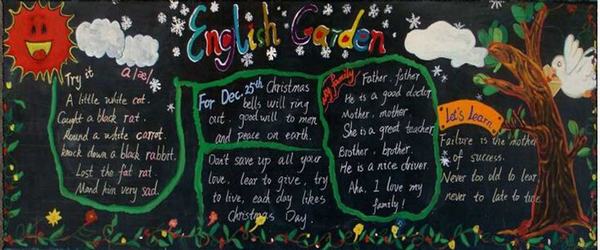 English Garden
Try it a/æ/
A little white cat.
Caught a black rat.
Round a white carrot.
knock down a black rabbit.
Lost the fat rat.
Mand him very sad.
For Dec. 25th Christmas
bells will ring
out. good will to men
and peace on earth.
Don't save up all your
love, lear to give, try
to live, each day likes
Christmas Day.
My family
Father, father
He is a good doctor
Mother, mother
She is a great teacher
Brother, brother.
He is a nice driver.
Aha, I love my
family!
let's learn
Failure is the mother
of success.
Never too old to lear
never to late to